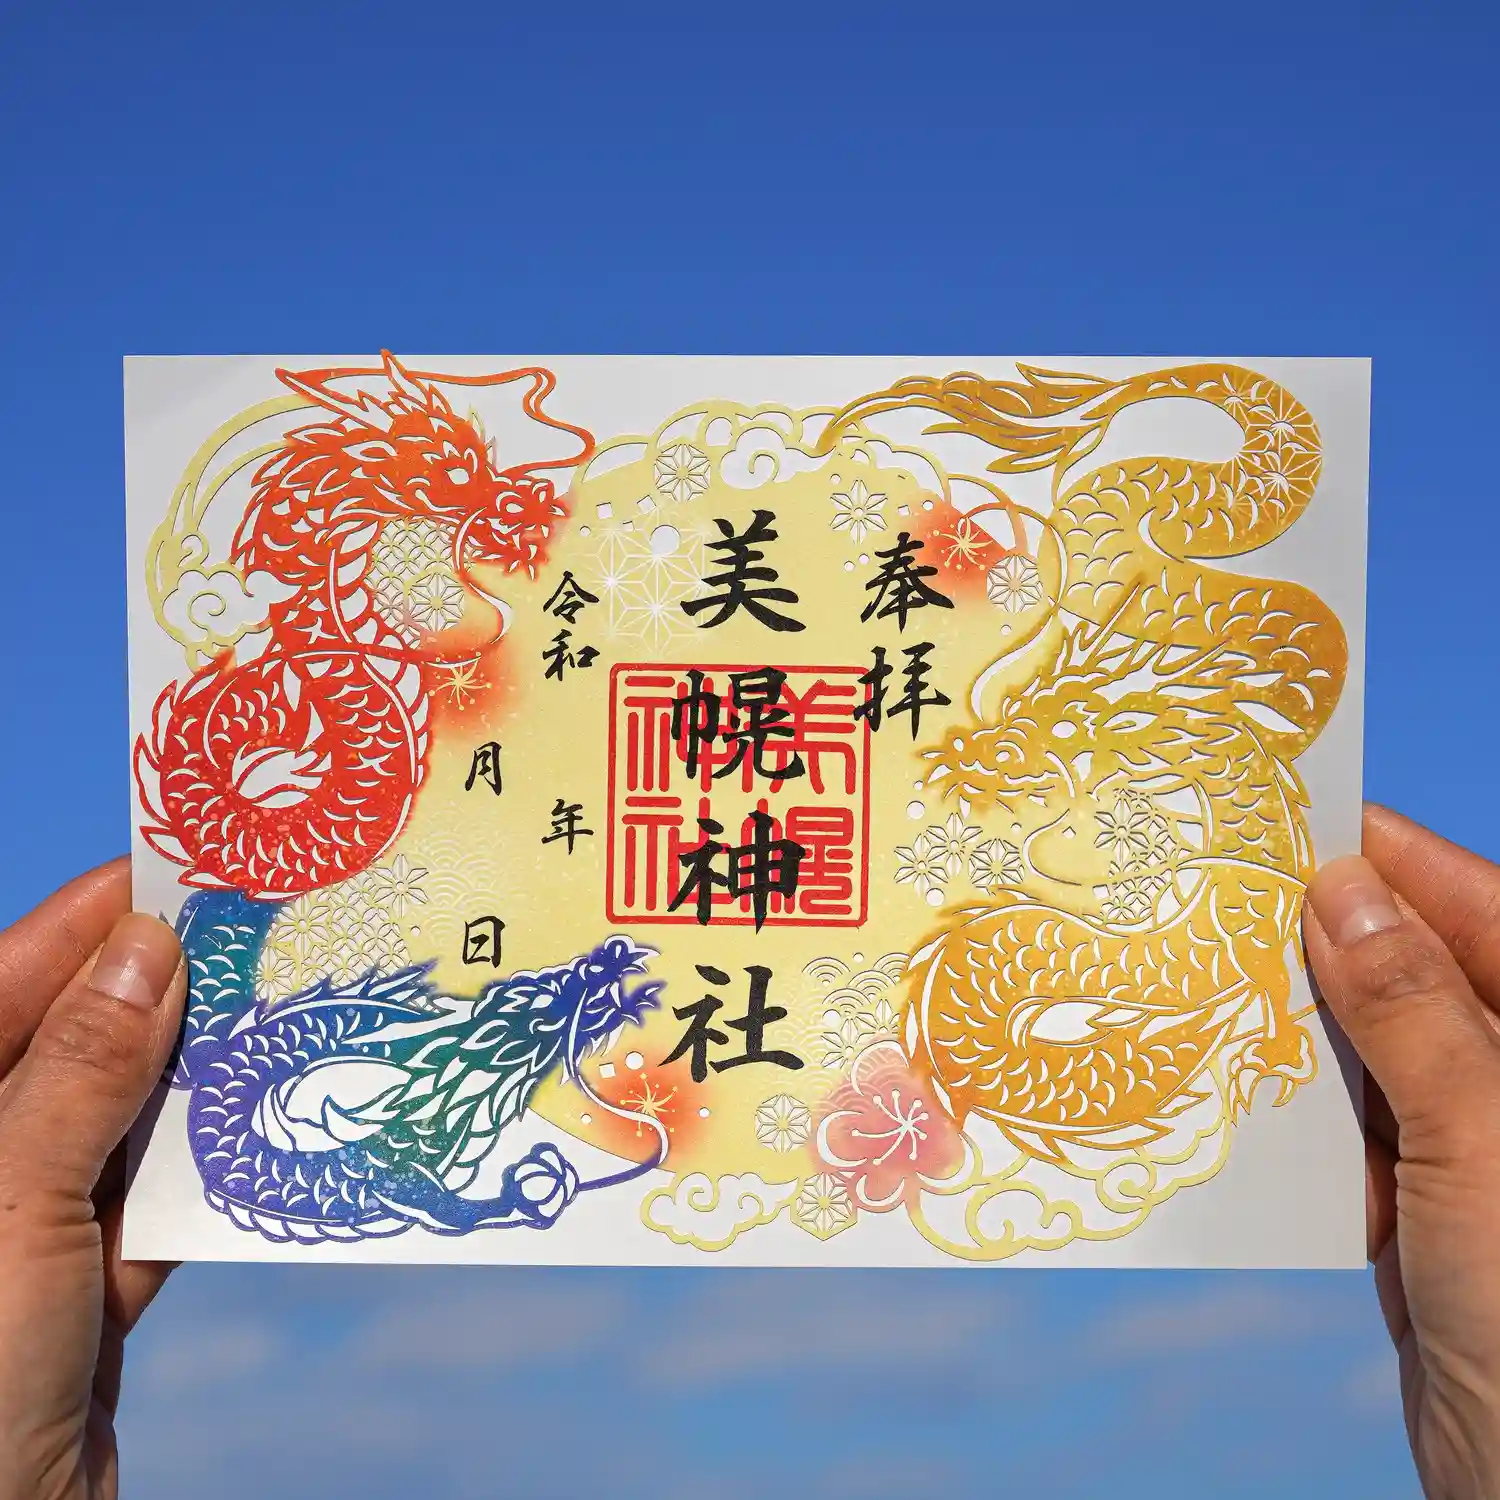 奉拝
美幌神社
美幌
神社
令和　年
月　日